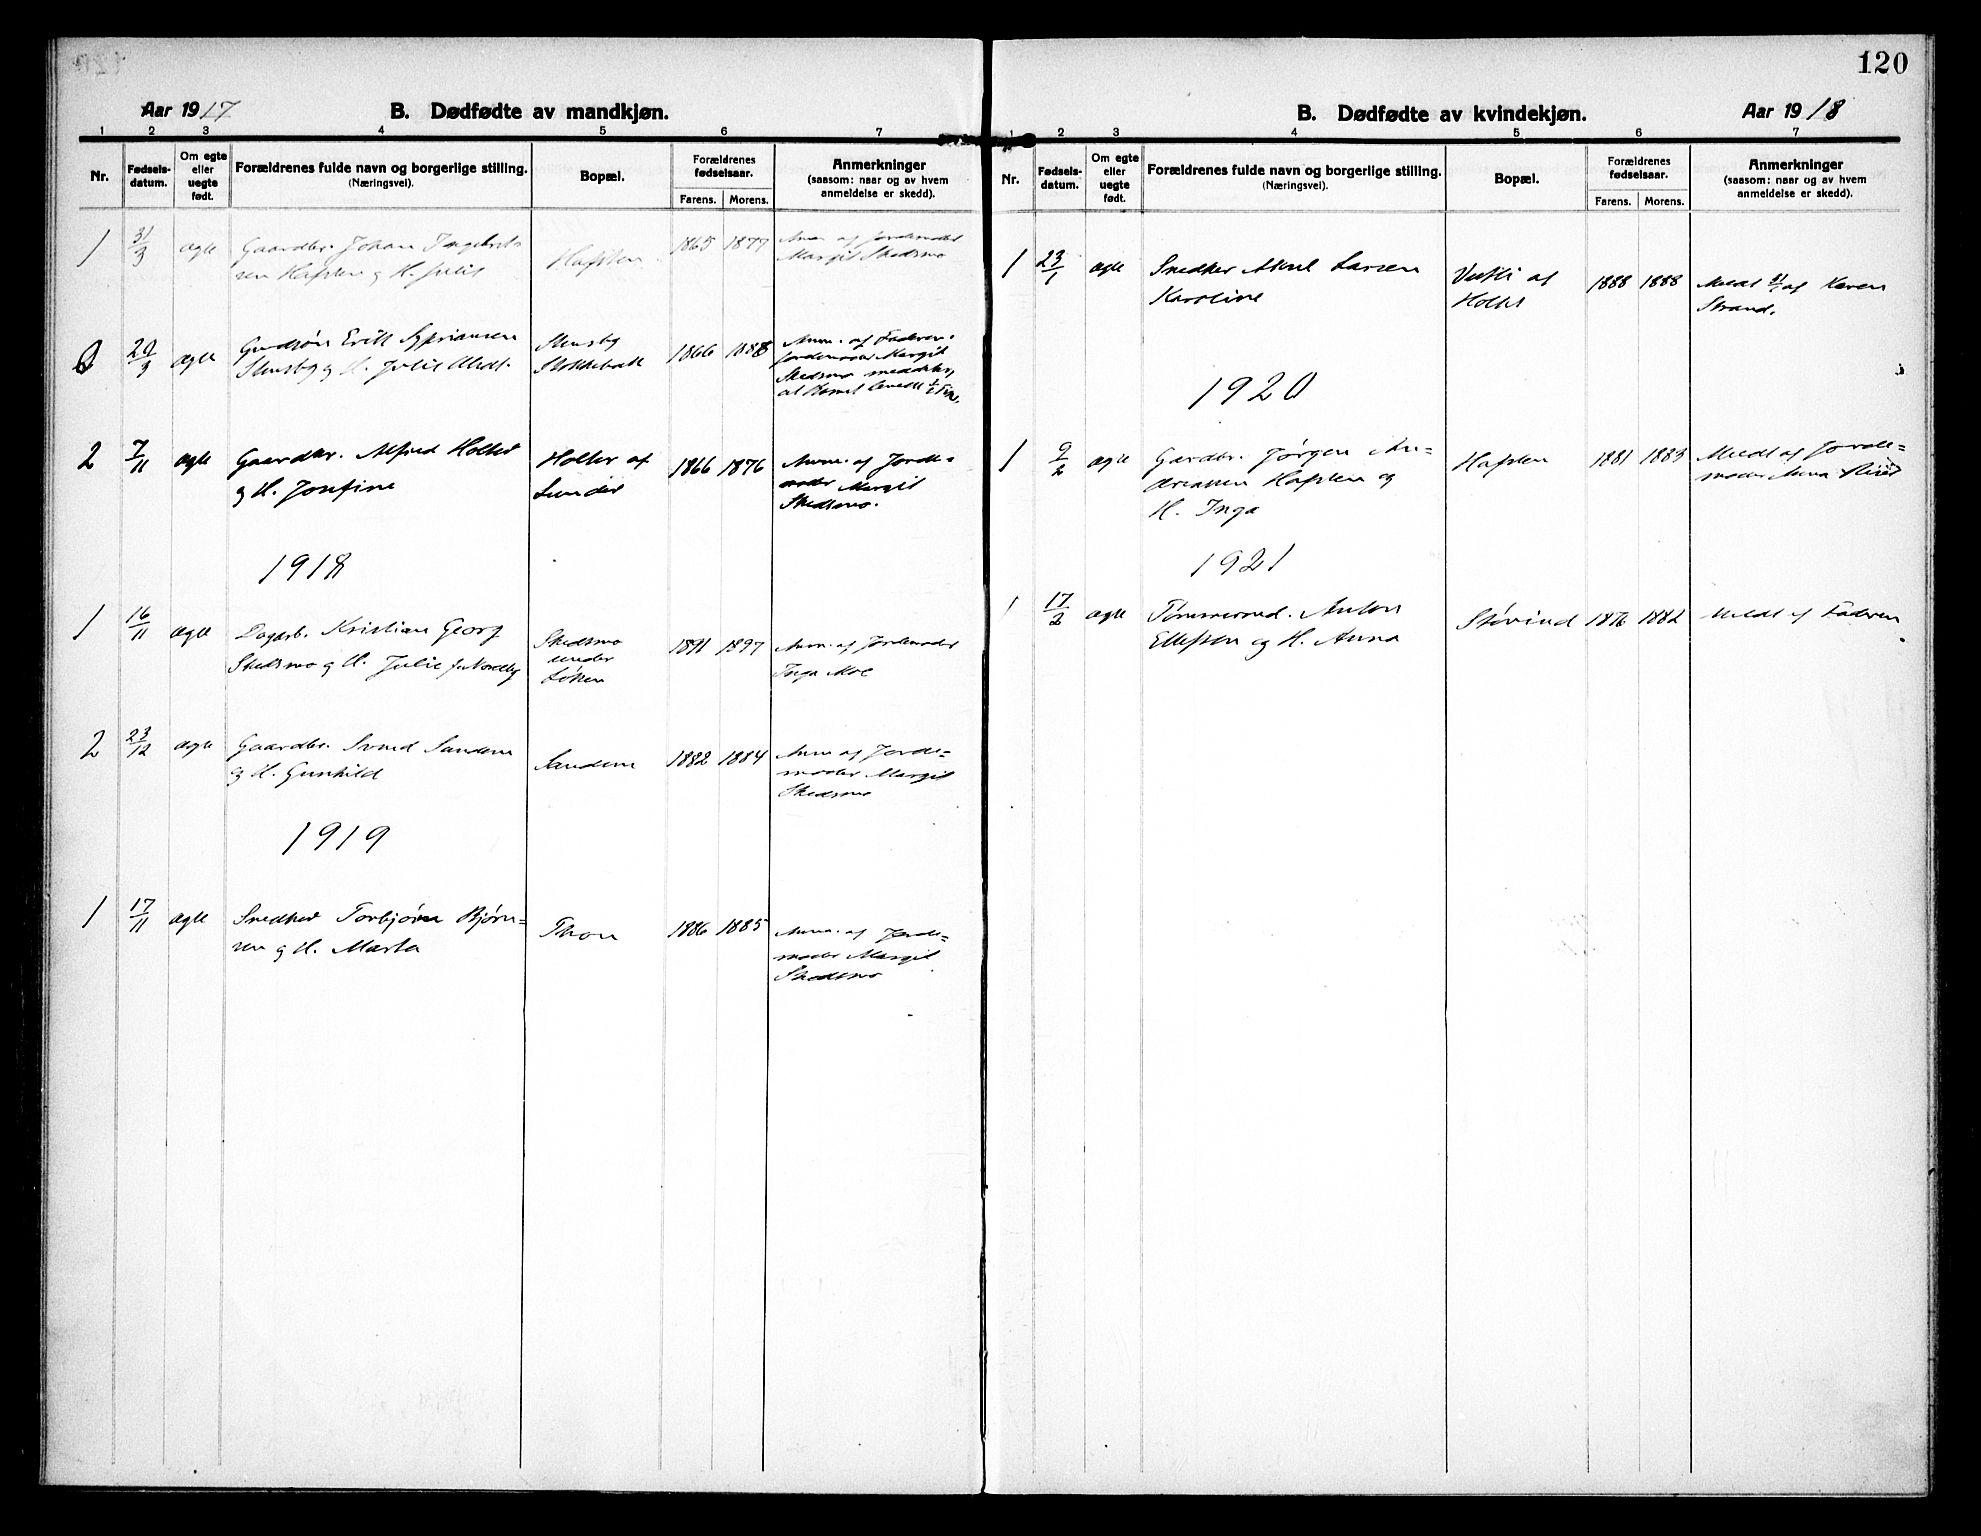 120
Aar 1917 B. Dødfødte av mandkjøn.
1 2 3 4 5 6 7
Nr. Fødsels-datum. Om egte eller uegte født. Forældrenes fulde navn og borgerlige stilling. (Næringsvei). Bopæl. Forældrenes fødselsaar. Farens. Morens. Anmerkninger (saasom: naar og av hvem anmeldelse er skedd).
1 31/3 ægte Gaardbr. Johan Ingebret-
sen Hafsten og H. Julie Hafsten 1865 1877 Anm. af Jordemoder
Margit Skedsmo
29/3 ægte Erik Sypriansen
og H. Julie Stensby
1866 1888 Anm. af Faderen.
Jordemoder Margit
Skedsmo meddeler,
at Barnet levede
2 7/11 ægte Gaardbr. Alfred Holter
og H. Josefine Holter af
Sunder 1866 1876 Anm. af Jorde-
moder Margit
Skedsmo.
1918
1 16/11 ægte Dagarb. Kristian Georg
Skedsmo og H. Julie f. Nordby Skedsmo
under
Løken 1891 1897 Anm. af Jordemoder
Inga Moe
2 23/12 ægte Gaardbr. Svend Sandem
og H. Gunhild Sandem 1882 1884 Anm af Jorde-
moder Margit
Skedsmo
1919
1 17/11 ægte Snedker Torbjørn Bjørn-
sen og H. Marta Thon 1886 1885 Anm. af Jorde-
moder Margit
Skedsmo
B. Dødfødte av kvindekjøn. Aar 1918
1 2 3 4 5 6 7
Nr. Fødsels-datum. Om egte eller uegte født. Forældrenes fulde navn og borgerlige stilling. (Næringsvei). Bopæl. Forældrenes fødselsaar. Farens. Morens. Anmerkninger (saasom: naar og av hvem anmeldelse er skedd).
1 23/1 ægte Snedker Aksel Larsen
Karoline Vestli af
Holter 1888 1888 Meldt af Karen
Strand.
1920
1 9/2 ægte Gardbr. Jørgen An-
dreassen Hafsten og
H. Inga Hafsten 1881 1883 Meldt af Jorde-
moder Anna
1921
1 17/2 ægte Tømmermd. Anton
Ellefsen og H. Anna Støvind 1876 1882 Meldt af Faderen